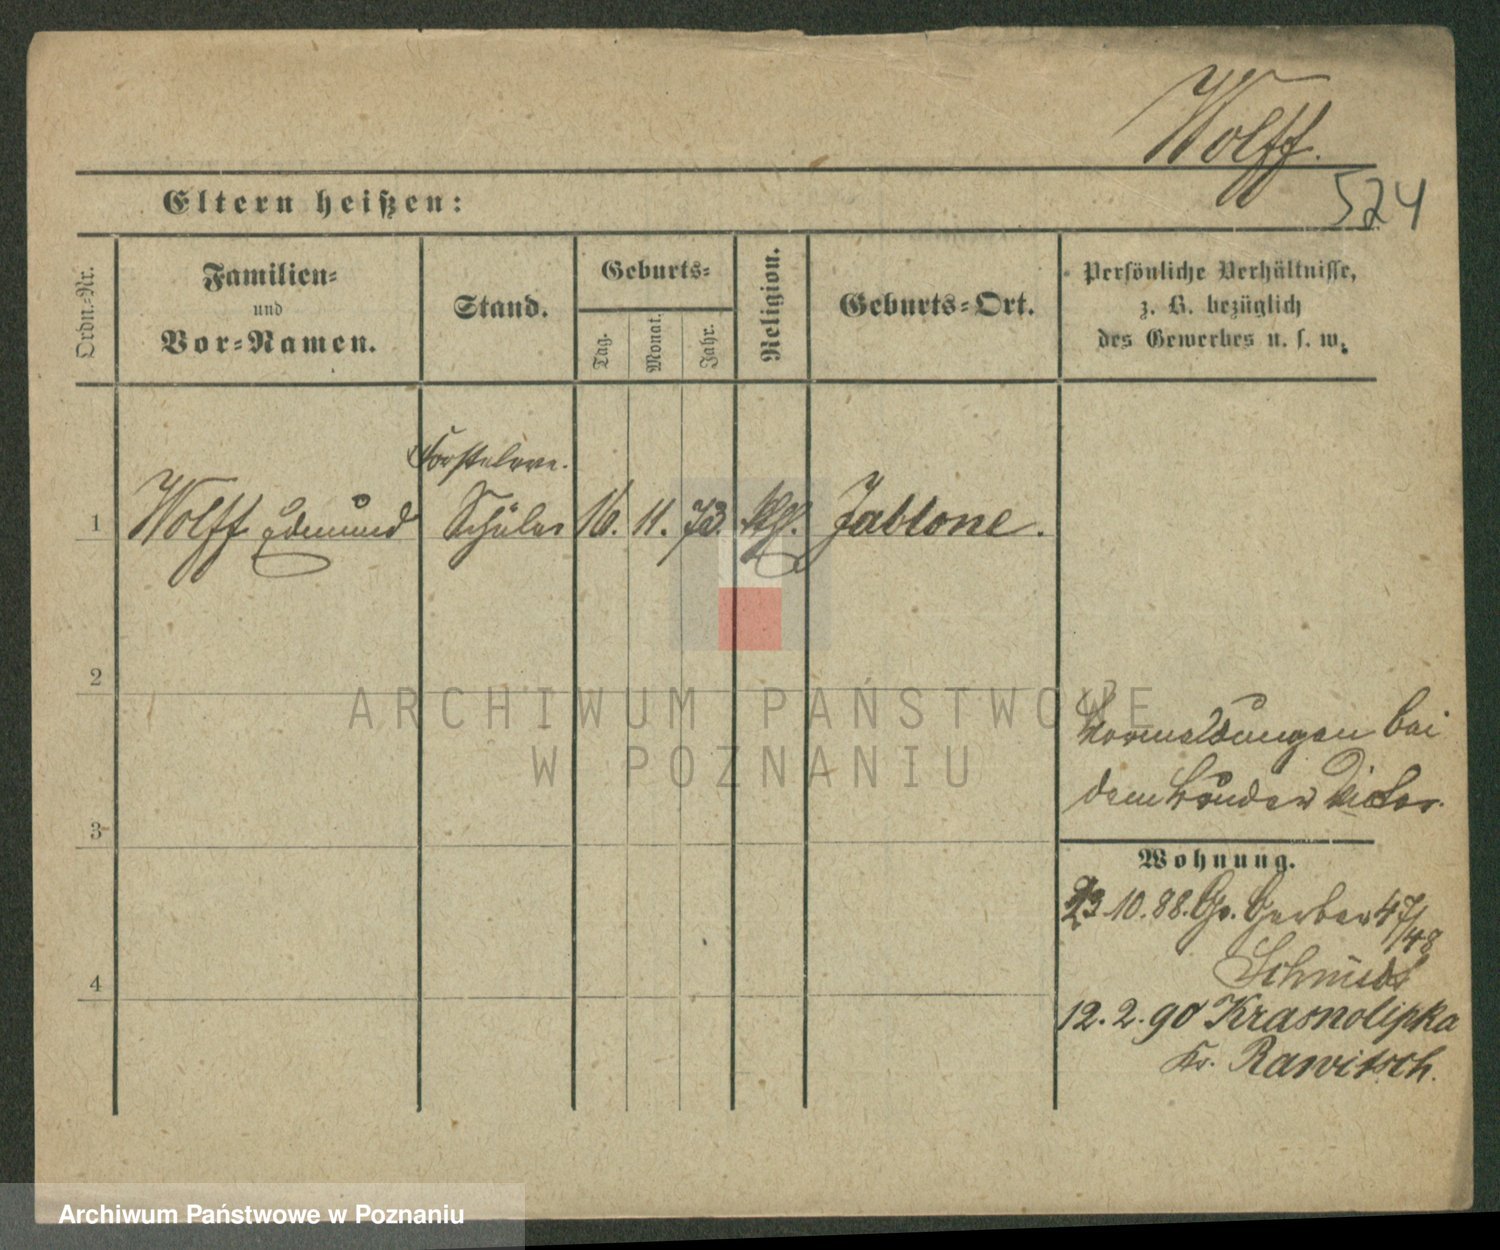 Wolff.
524
Eltern heißen:
Ordn.-Nr.
Familien-
und
Vor-Namen.
Stand.
Geburts-
Tag.
Monat.
Jahr.
Religion.
Geburts-Ort.
Persönliche Verhältnisse,
z. B. bezüglich
des Gewerbes u. s. w.
Forsteleve.
1 Wolff Edmund Schüler 16. 11. 73. kth. Jablone.
2
Vormeldungen bei
dem Bruder Victor.
3
Wohnung.
23 10. 88. Gr. Gerber 47/48
Schmidt
4
12. 2. 90 Krasnolipka
Kr. Rawitsch.
ARCHIWUM PAŃSTWOWE
W POZNANIU
Archiwum Państwowe w Poznaniu